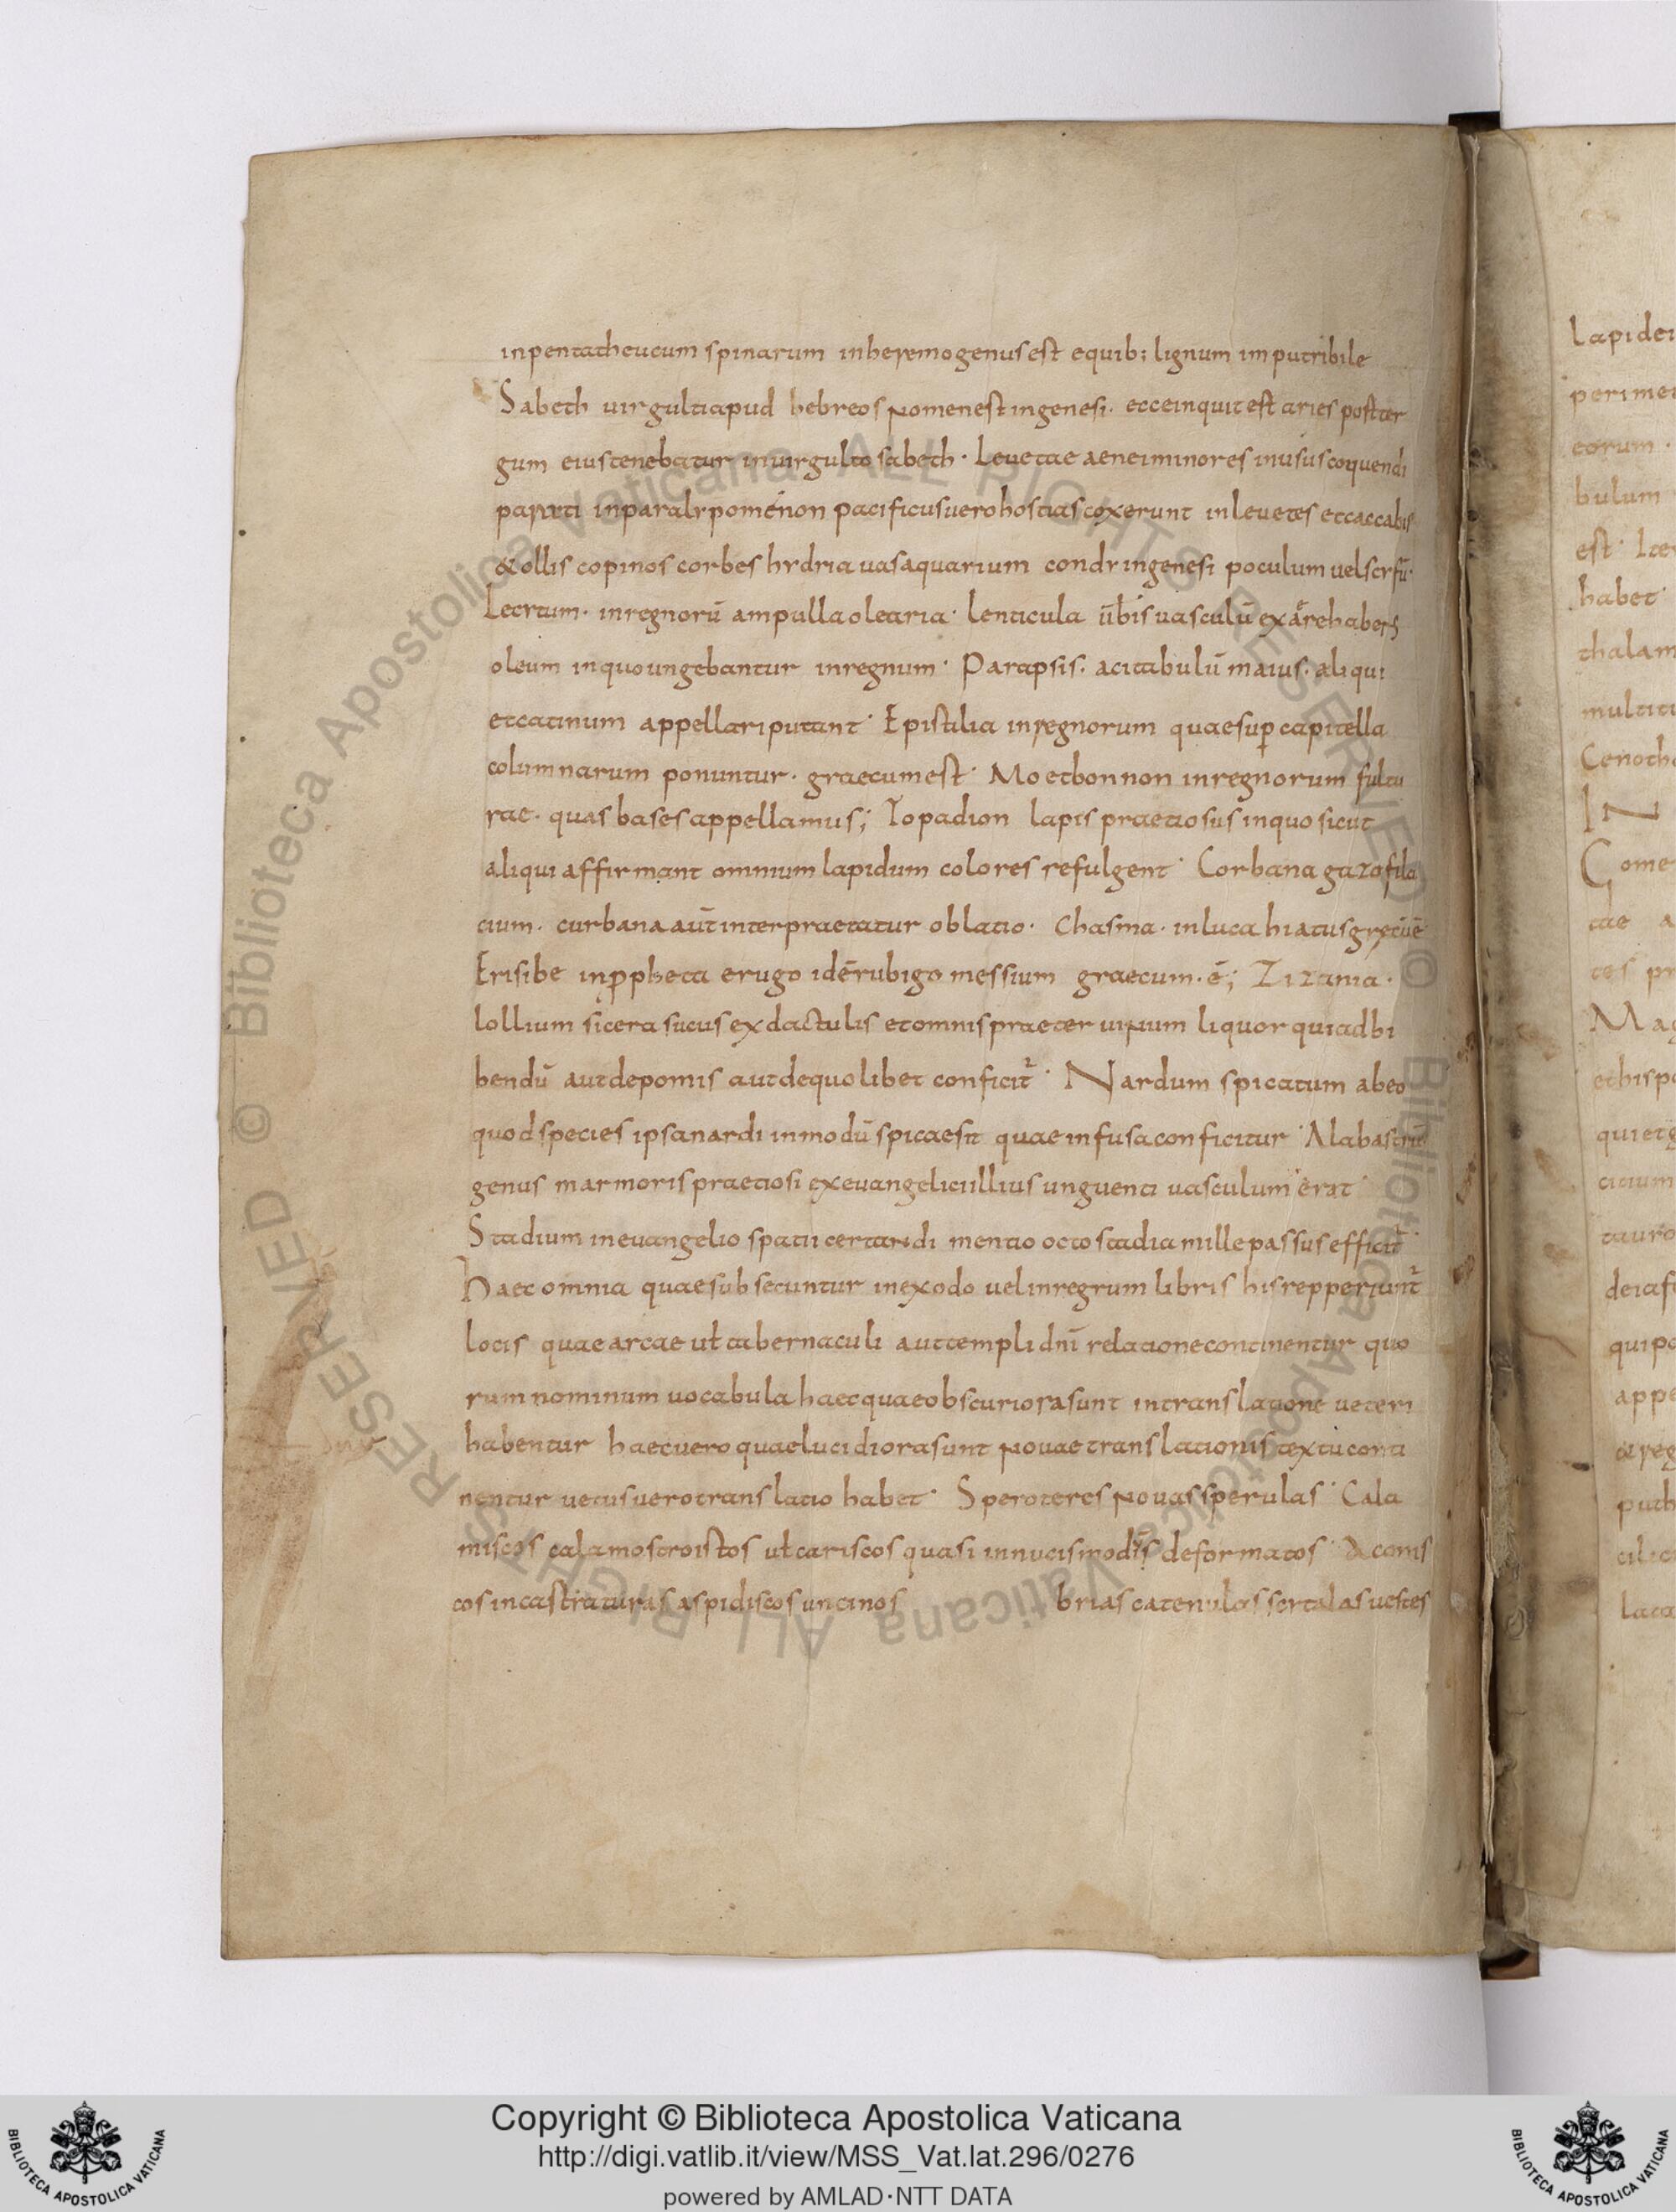 inpentatheucum spinarum inheremogenus est equib; lignum imputribile
Sabeth uirgultiapud hebreos nomen est ingenesi· ecce inquit est aries postter
gum eius tenebatur inuirgulto sabeth· Leuetae aenei minores inusus coquendi
inparalypomenon pacificus uero hostias coxerunt inleuetes et caccabis
& ollis copinos corbes hydria uas aquarium condy ingenesi poculum uel scyfū·
Lecytum· inregnorū ampulla olearia· lenticula uasculū ex habens
oleum inquo ungebantur inregnum· Parapsis· acitabulū maius· aliqui
et catinum appellari putant· Epistilia inregnorum quae sup capitella
columnarum ponuntur· graecum est· Moetbonnon inregnorum fultu
rae· quas bases appellamus; Topadion lapis praetiosus inquo sicut
aliqui affirmant omnium lapidum colores refulgent· Corbana gazofila
cium· curbana aut̄ interpraetatur oblatio· Chasma· inluca hiatus
Erisibe inppheta erugo idē rubigo messium graecum·ē; Zizania·
lollium sicera sucus ex dactulis et omnis praeter uinum liquor qui adbi
bendū aut depomis aut dequolibet conficit̄· Nardum spicatum abeo
quod species ipsa nardi inmodū spicae sit quae infusa conficitur· Alabastrū
genus marmoris praetiosi ex euangelici illius unguenti uasculum erat·
Stadium ineuangelio spatii certandi mentio octo stadia mille passus efficit̄·
Haec omnia quae subsecuntur inexodo uel inregrum libris his repperiunt̄
locis quae arcae ut̄ tabernaculi aut templi dn̄i relatione continentur quo
rum nominum uocabula haec quae obscuriora sunt intranslatione ueteri
habentur haec uero quae lucidiora sunt nouae translationis textu conti
nentur uetus uero translatio habet· Speroteres nouas sperulas· Cala
miscos calamos troistos ut̄ cariscos quasi innucis modū deformatos· Aconis
cos incastraturas aspidiscos uncinos brias catenulas sertulas uestes
lapidei
perimet
eorum·
bulum
est·
habet·
thalam
multiti
Cenoth
IN
Come
tae a
tes pr
Mag
quietg
citium
tauro
appe
& reg
puth
cilic
Copyright © Biblioteca Apostolica Vaticana
http://digi.vatlib.it/view/MSS_Vat.lat.296/0276
powered by AMLAD·NTT DATA
BIBLIOTECA APOSTOLICA VATICANA
BIBLIOTECA APOSTOLICA VATICANA
© Biblioteca Apostolica Vaticana ALL RIGHTS RESERVED
© Biblioteca Apostolica Vaticana ALL RIGHTS RESERVED